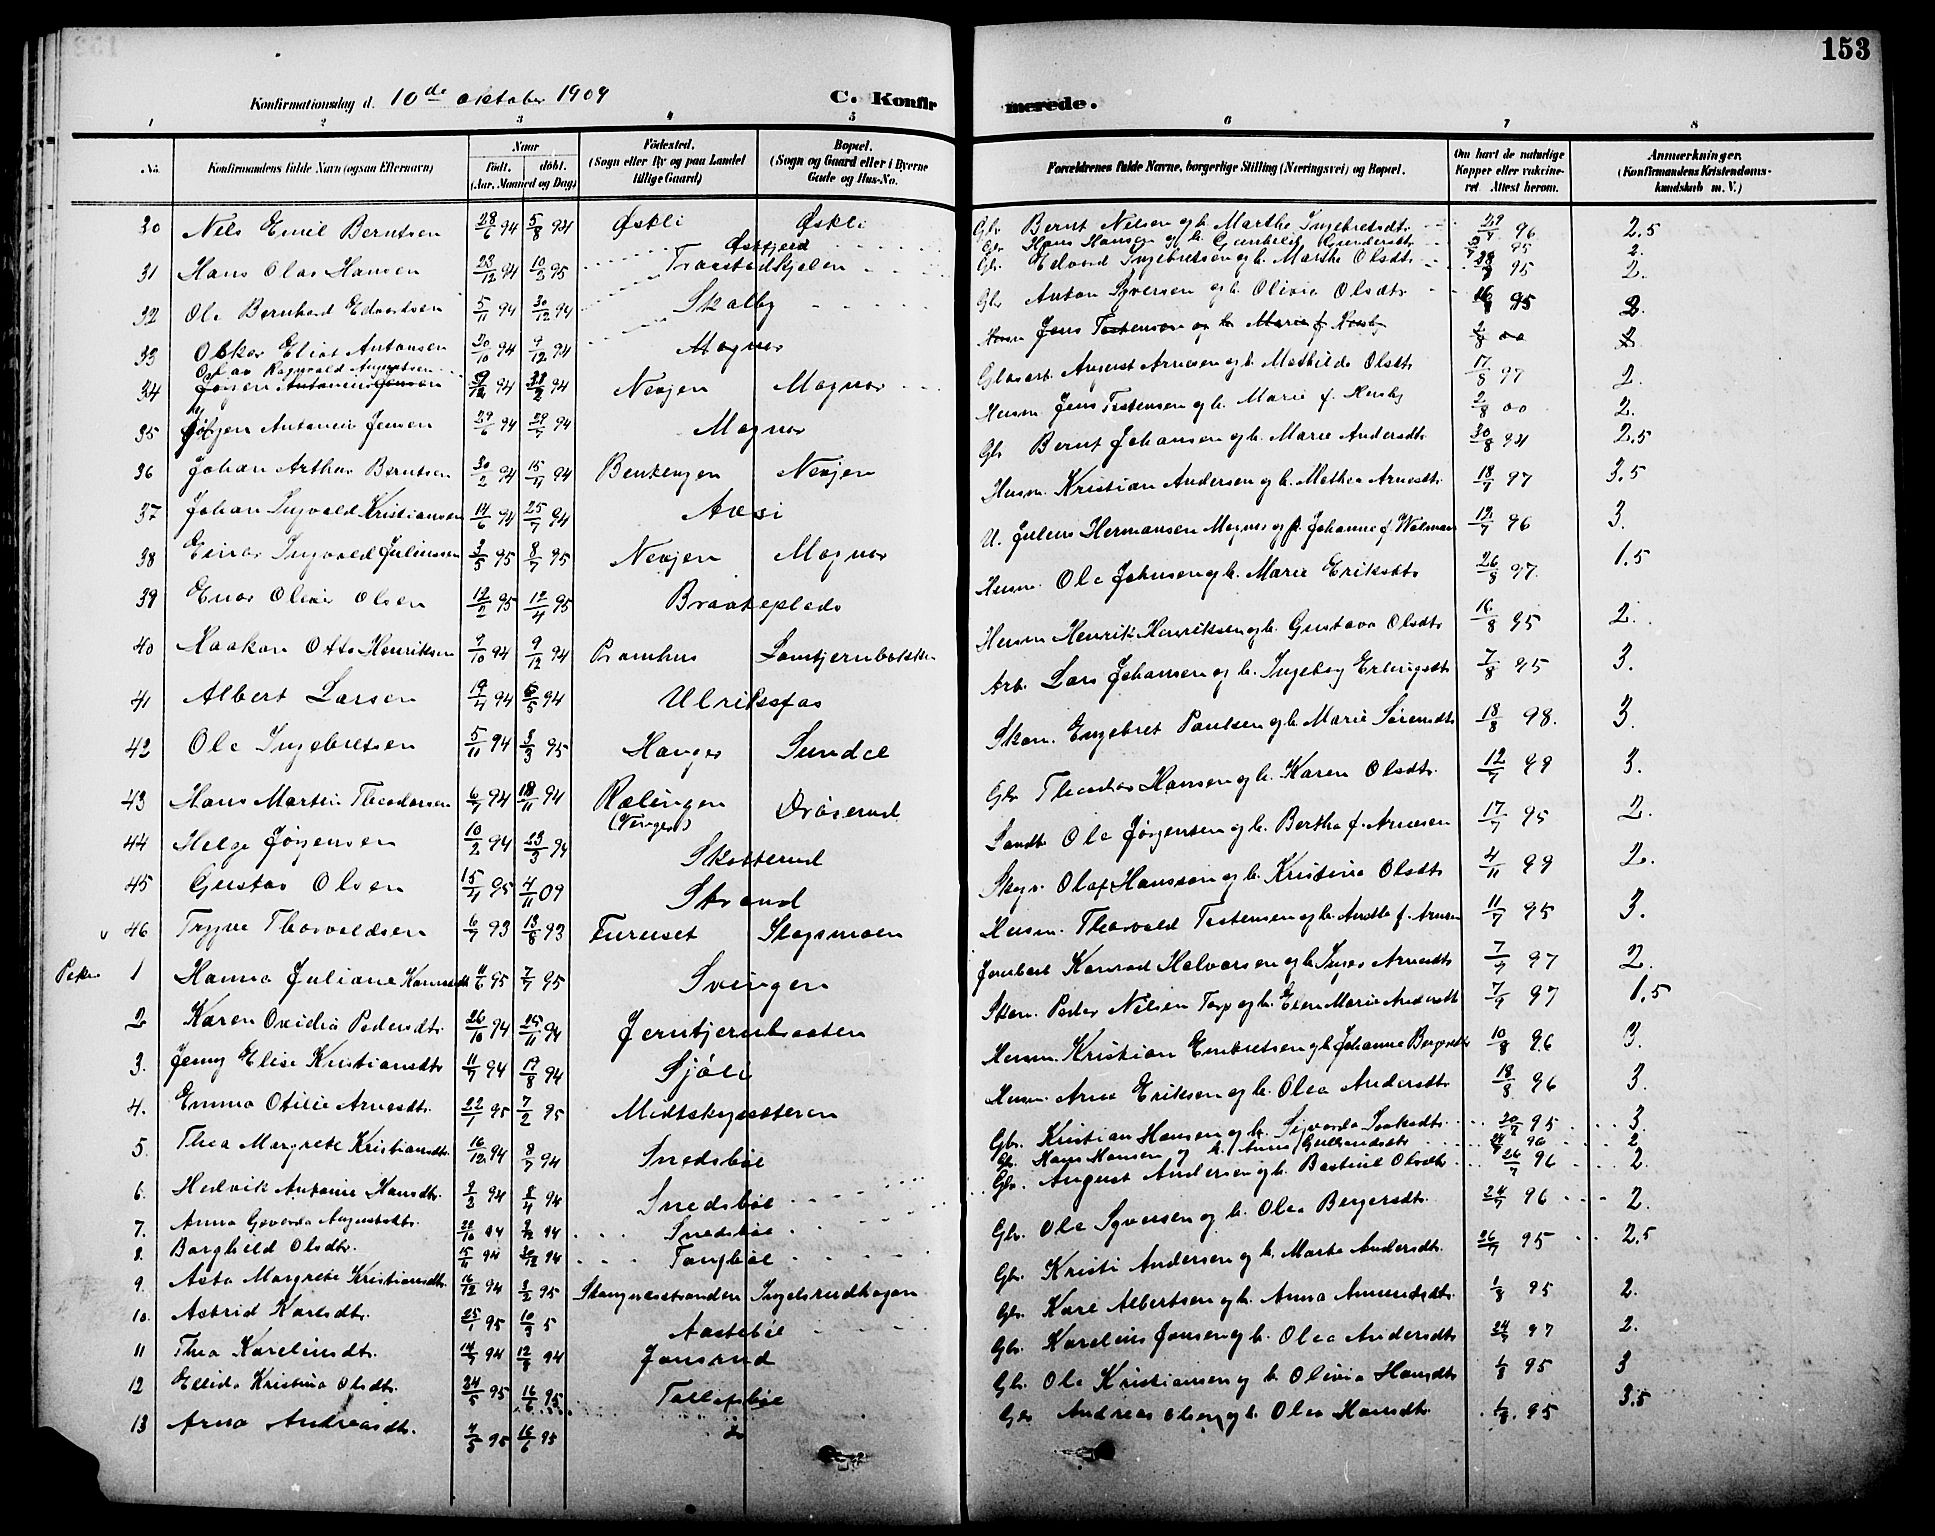 153
Konfirmationsdag d. 10de oktober 1909 C. Konfir merede.
1 2 3 4 5 6 7 8
No. Konfirmandens fulde Navn (ogsaa Efternavn) Naar Födt. döbt. (Aar, Maaned og Dag) Födested. (Sogn eller By og paa Landet tillige Gaard) Bopæl. (Sogn og Gaard eller i Byerne Gade og Hus-No. Forældrenes fulde Navne, borgerlige Stilling (Næringsvei) og Bopæl. Om havt de naturlige Kopper eller vakcineret. Attest herom. Anmærkninger. (Konfirmandens Kristendomskundskab m. V.)
30 Nels Emil Berntsen 28/6 94 5/8 94 Øskli Øskli Gbr Bernt Nilsen og h. Marthe Ingebretsdtr 96 2.5
31 Hans Olav Hansen 23/12 94 10/3 95 Øskfjerd Gbr Hans Hansen og h. Gunhild Gundersdtr 95 2.
32 Ole Bernhard Edvardsen 5/11 94 30/12 94 Skalby Gbr. Edvard Ingebretsen og h. Marthe Olsdtr 95 2.
33 Oskar Eliot Antonsen 30/10 94 9/12 94 Magnor Gbr Anton Syversen og h. Olivie Olsdtr 95 2
Jens Torstensen og h. Marie f. Horsby 00 2
34 Olav Ragnvald Augustsen 94 94 Nesjen Magnor Glasarb. August Arnesen og h. Mathilde Olsdtr 17/8 97 2.
35 Jørgen Antonin Jensen 29/6 94 29/7 94 Magnor Husm Jens Torstensen og h. Marie f. Horsby 2/8 00 2.
36 Johan Arthur Berntsen 30/2 94 15/4 94 Benkengen Nesjen Gbr Bernt Johansen og h. Marie Andersdtr 30/8 94 2.5
37 Johan Ingvald Kristiansen 14/6 94 25/7 94 Aasi Husm. Kristian Andersen og h. Mathea Arnesdtr 18/7 97 3.5
38 Einar Ingvald Juliussen 3/5 95 8/7 95 Nesjen Magnor U. Julius Hermansen Magnus og p. Johanne f. Walmann 12/7 96 3.
39 Enar Oliver Olsen 12/2 95 12/4 95 Braateplads Husm. Ole Johnsen og h. Marie Eriksdtr 26/8 97. 1.5
40 Haakon Otto Henriksen 7/10 94 9/12 94 Pramhus Husm Henrik Henriksen og h. Gustava Olsdtr 16/8 95 2.
41 Albert Larsen 19/4 94 6/5 94 Ulriksfos Arb. Lars Johansen og h. Ingeborg Erlingsdtr 7/8 95 3.
42 Ole Ingebretsen 5/11 94 3/3 95 Hanger Sundet Skom. Engebret Paulsen og h. Marie Sørensdtr 18/8 98. 3.
43 Hans Martin Theodorsen 6/7 94 18/11 94 Rælingen (Vinger) Gbr Theodor Hansen og h. Karen Olsdtr 12/7 99 3.
44 Helge Jørgensen 10/2 94 23/3 94 Skotterud Landh. Ole Jørgensen og h. Bertha f. Arnesen 17/7 95 2.
45 Gustav Olsen 15/4 95 4/11 09 Strand Skogv. Olaf Hanssen og h. Kristine Olsdtr 4/11 99 2.
46 Trygve Thorvaldsen 6/7 93 13/8 93 Furuset Skogsmoen Husm. Thorvald Torstensen og h. f. 11/7 95 3.
Piker
1 Hanna Juliane 4/6 95 7/7 95 Svingen Jernbarb Konrad Halvorsen og h. Inger Arnesdtr 7/7 97 2.
2 Karen Ovidia Pedersdtr. 26/10 94 25/11 94 Jerntjernbraaten Skom. Peder Nilsen Torp og h. Elen Marie Andersdtr 7/7 97 1.5
3. Jenny Elise Kristiansdtr 11/7 94 19/8 94 Sjöli Husm. Kristian Embretsen og h. Johanne Bergersdtr 10/8 96 3.
4. Emma Otilie Arnesdtr. 22/1 95 7/2 95 Midtskogsæteren Husm. Arne Eriksen og h. Olea Andersdtr 18/8 96 3.
5. Thea Margrete Kristiansdtr. 16/12 94 8/7 94 Snedsböl Gbr. Kristian Hansen og h. Syverda Isaksdtr 95 3.
6. Hedvik Antonie Hansdtr. 94 94 Snedsböl Gbr. Hans Hansen og h. Anne Gulbrandsdtr 96 2
7. Anna Gaverda Augustsdtr. 94 94 Snedsböl Gbr. August Andersen og h. Bastine Olsdtr 96 2.
8. Borghild Olsdtr. 94 94 Tangböl Gbr. Ole Syversen og h. Olea Bergersdtr. 96 2.
9. Asta Margrete Kristiansdtr. 16/12 94 3/2 95 Skongnæsstranden Ingelsrudhagan Gbr. Kristi Andersen og h. Marte Andersdtr. 26/7 95 2.5
10. Astrid Karlsdtr. 25/1 95 10/3 5 Aasteböl Gbr Karl Albertsen og h. Anna Amundsdtr. 1/8 95 2.
11 Thea Karelinsdtr. 14/7 94 12/8 94 Jonsrud Gbr. Karelius Jonsen og h. Olea Andersdtr 24/7 97 2.
12 Ellida Kristine Olsdtr. 24/5 95 16/6 95 Tollefsböl Gbr. Ole Kristiansen og h. Olivia Hansdtr 1/8 95 3
13 Arna Andreasdtr. 4/5 95 16/6 95 do Gbr Andreas Olsen og h. Olea Hansdtr. 1/8. 95 3.5